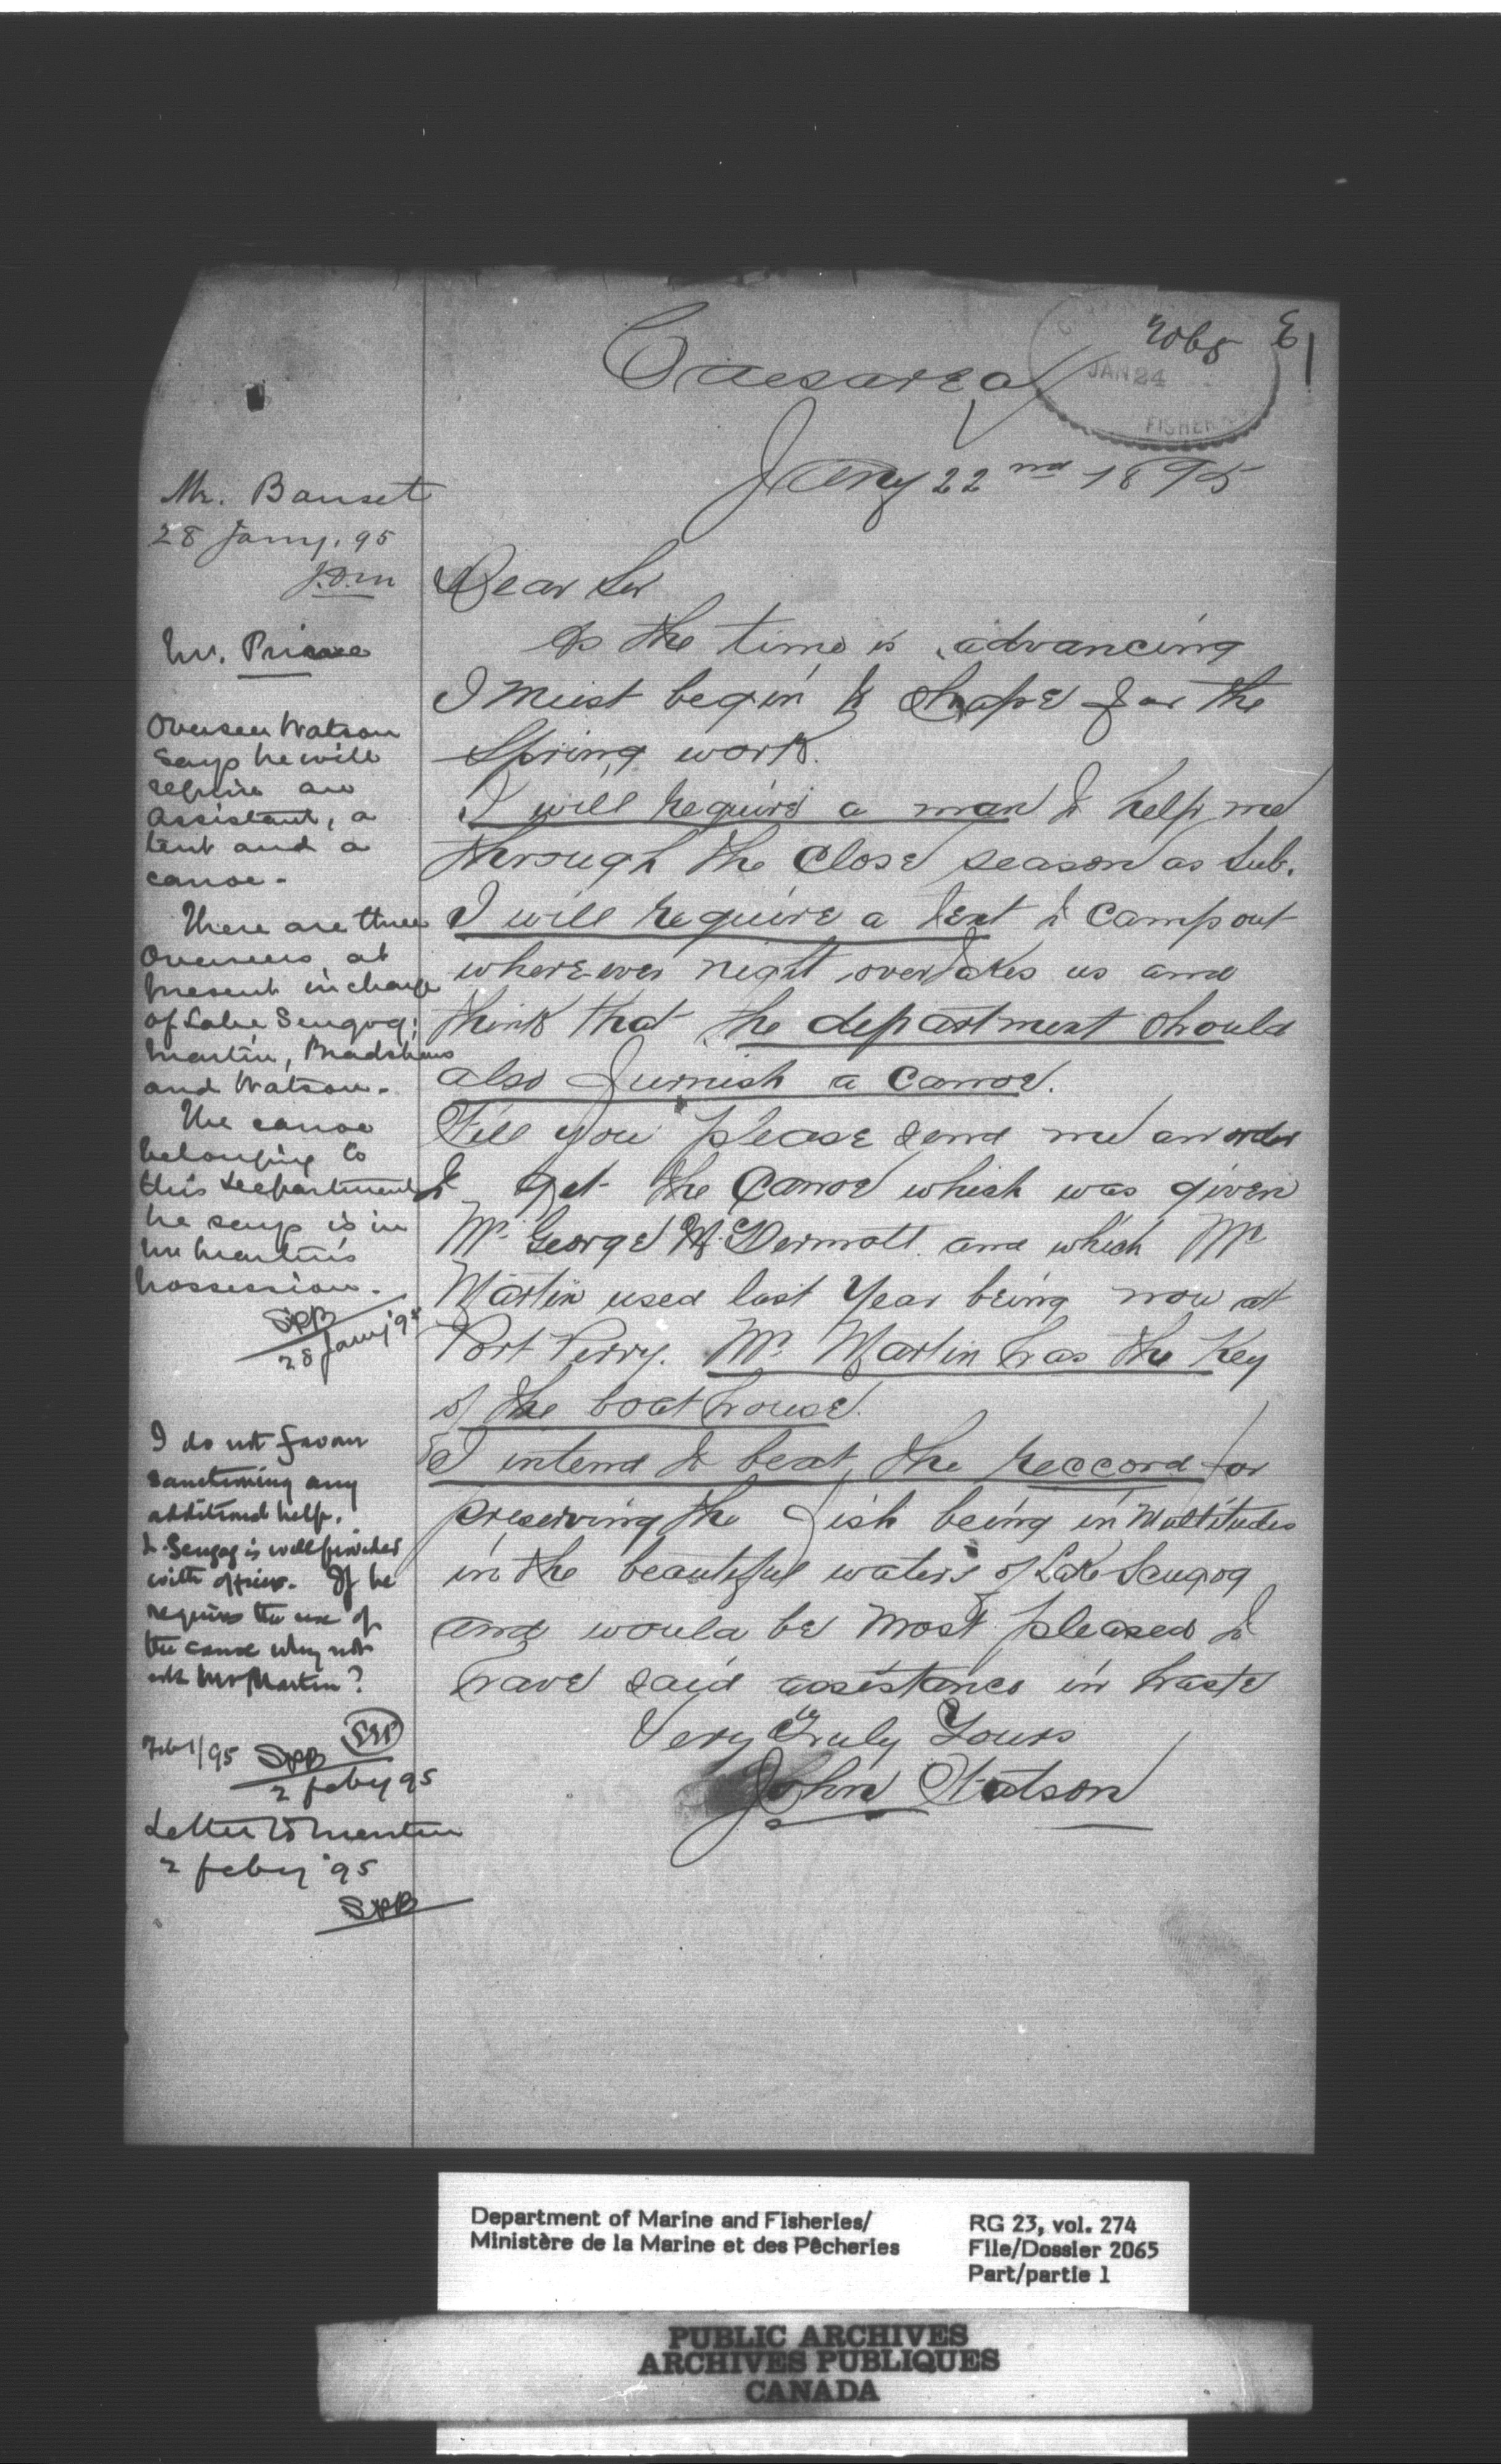 2065 E
JAN 24
FISHER
Caesarea
Jany 22nd 1895
Mr. Bauset
28 Jany. 95
Dear Sir
As the time is advancing
I must begin to Shape for the
Spring work.
I will require a man to help me
through the Close season as Sub.
I will require a tent to Camp out
where-ever night overtakes us and
think that the department Should
also furnish a Canoe.
Will you please send me an order
to get the Canoe which was given
Mr. George McDermott and which Mr
Martin used last Year being now at
Port Perry. Mr Martin has the Key
of the boat house.
I intend to beat the Reccord for
preserving the Fish being in Multitudes
in the beautiful waters of Lake Scugog
and would be most pleased to
have said assistance in haste
Very Truly Yours
John Watson
Mr. Prince
Overseer Watson
says he will
require an
assistant, a
tent and a
canoe.
There are three
Overseers at
present in charge
of Lake Scugog;
Martin, Bradshaw
and Watson.
The canoe
belonging to
this Department
he says is in
Mr Martin's
possession.
28 Jany '95
I do not favour
sanctioning any
additional help.
L. Scugog is well provided
with officers. If he
requires the use of
the canoe why not
ask Mr Martin?
Feb 1/95
2 feby 95
Letter to Martin
2 feby '95
Department of Marine and Fisheries/
Ministère de la Marine et des Pêcheries
RG 23, vol. 274
File/Dossier 2065
Part/partie 1
PUBLIC ARCHIVES
ARCHIVES PUBLIQUES
CANADA